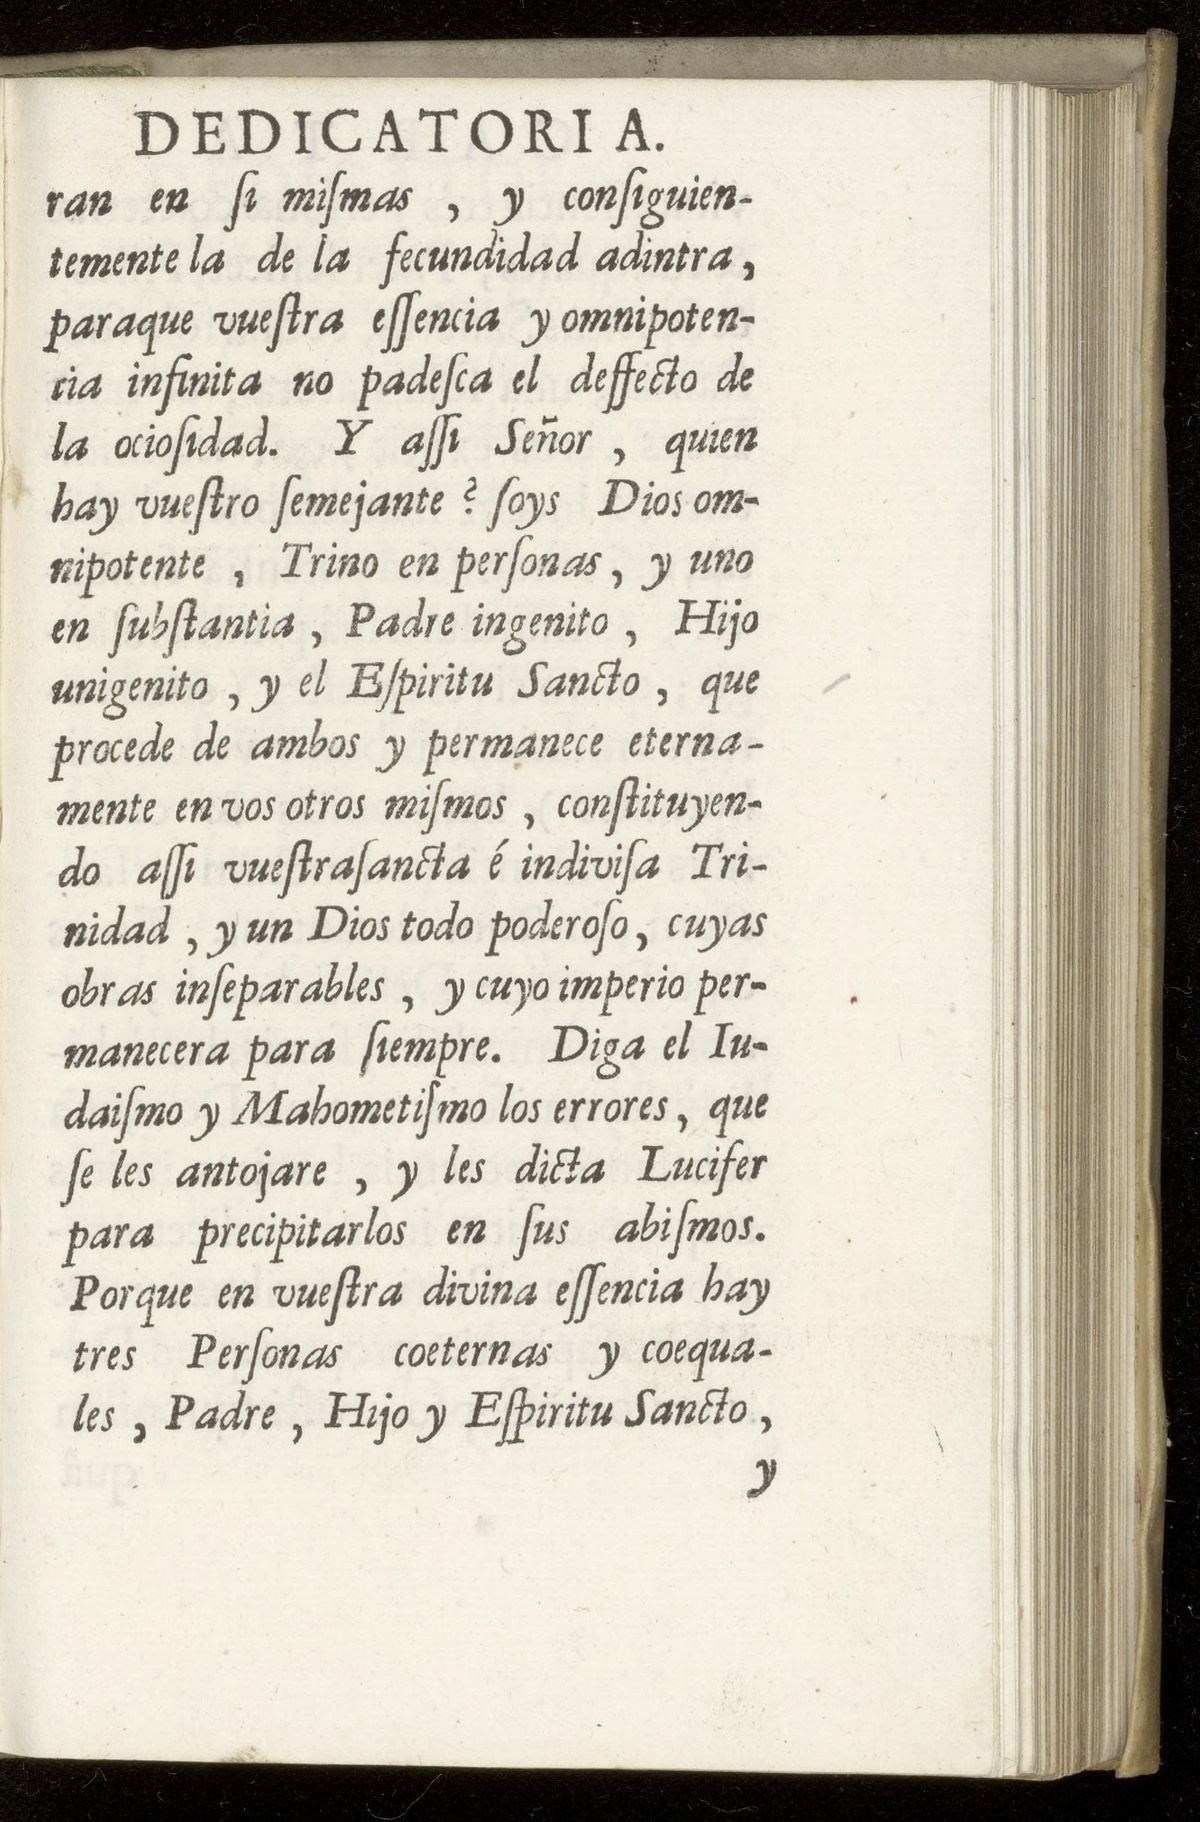 DEDICATORIA.
ran en ſi miſmas , y conſiguien-
temente la de la fecundidad adintra,
paraque vueſtra eſſencia y omnipoten-
cia infinita no padeſca el deffecto de
la ocioſidad. Y aſſi Señor , quien
hay vueſtro ſemejante ? ſoys Dios om-
nipotente , Trino en perſonas, y uno
en ſubſtantia , Padre ingenito , Hijo
unigenito , y el Eſpiritu Sancto , que
procede de ambos y permanece eterna-
mente en vos otros miſmos , conſtituyen-
do aſſi vueſtraſancta é indiviſa Tri-
nidad , y un Dios todo poderoſo, cuyas
obras inſeparables , y cuyo imperio per-
manecera para ſiempre. Diga el Iu-
daiſmo y Mahometiſmo los errores, que
ſe les antojare , y les dicta Lucifer
para precipitarlos en ſus abiſmos.
Porque en vueſtra divina eſſencia hay
tres Perſonas coeternas y coequa-
les , Padre , Hijo y Eſpiritu Sancto ,
y